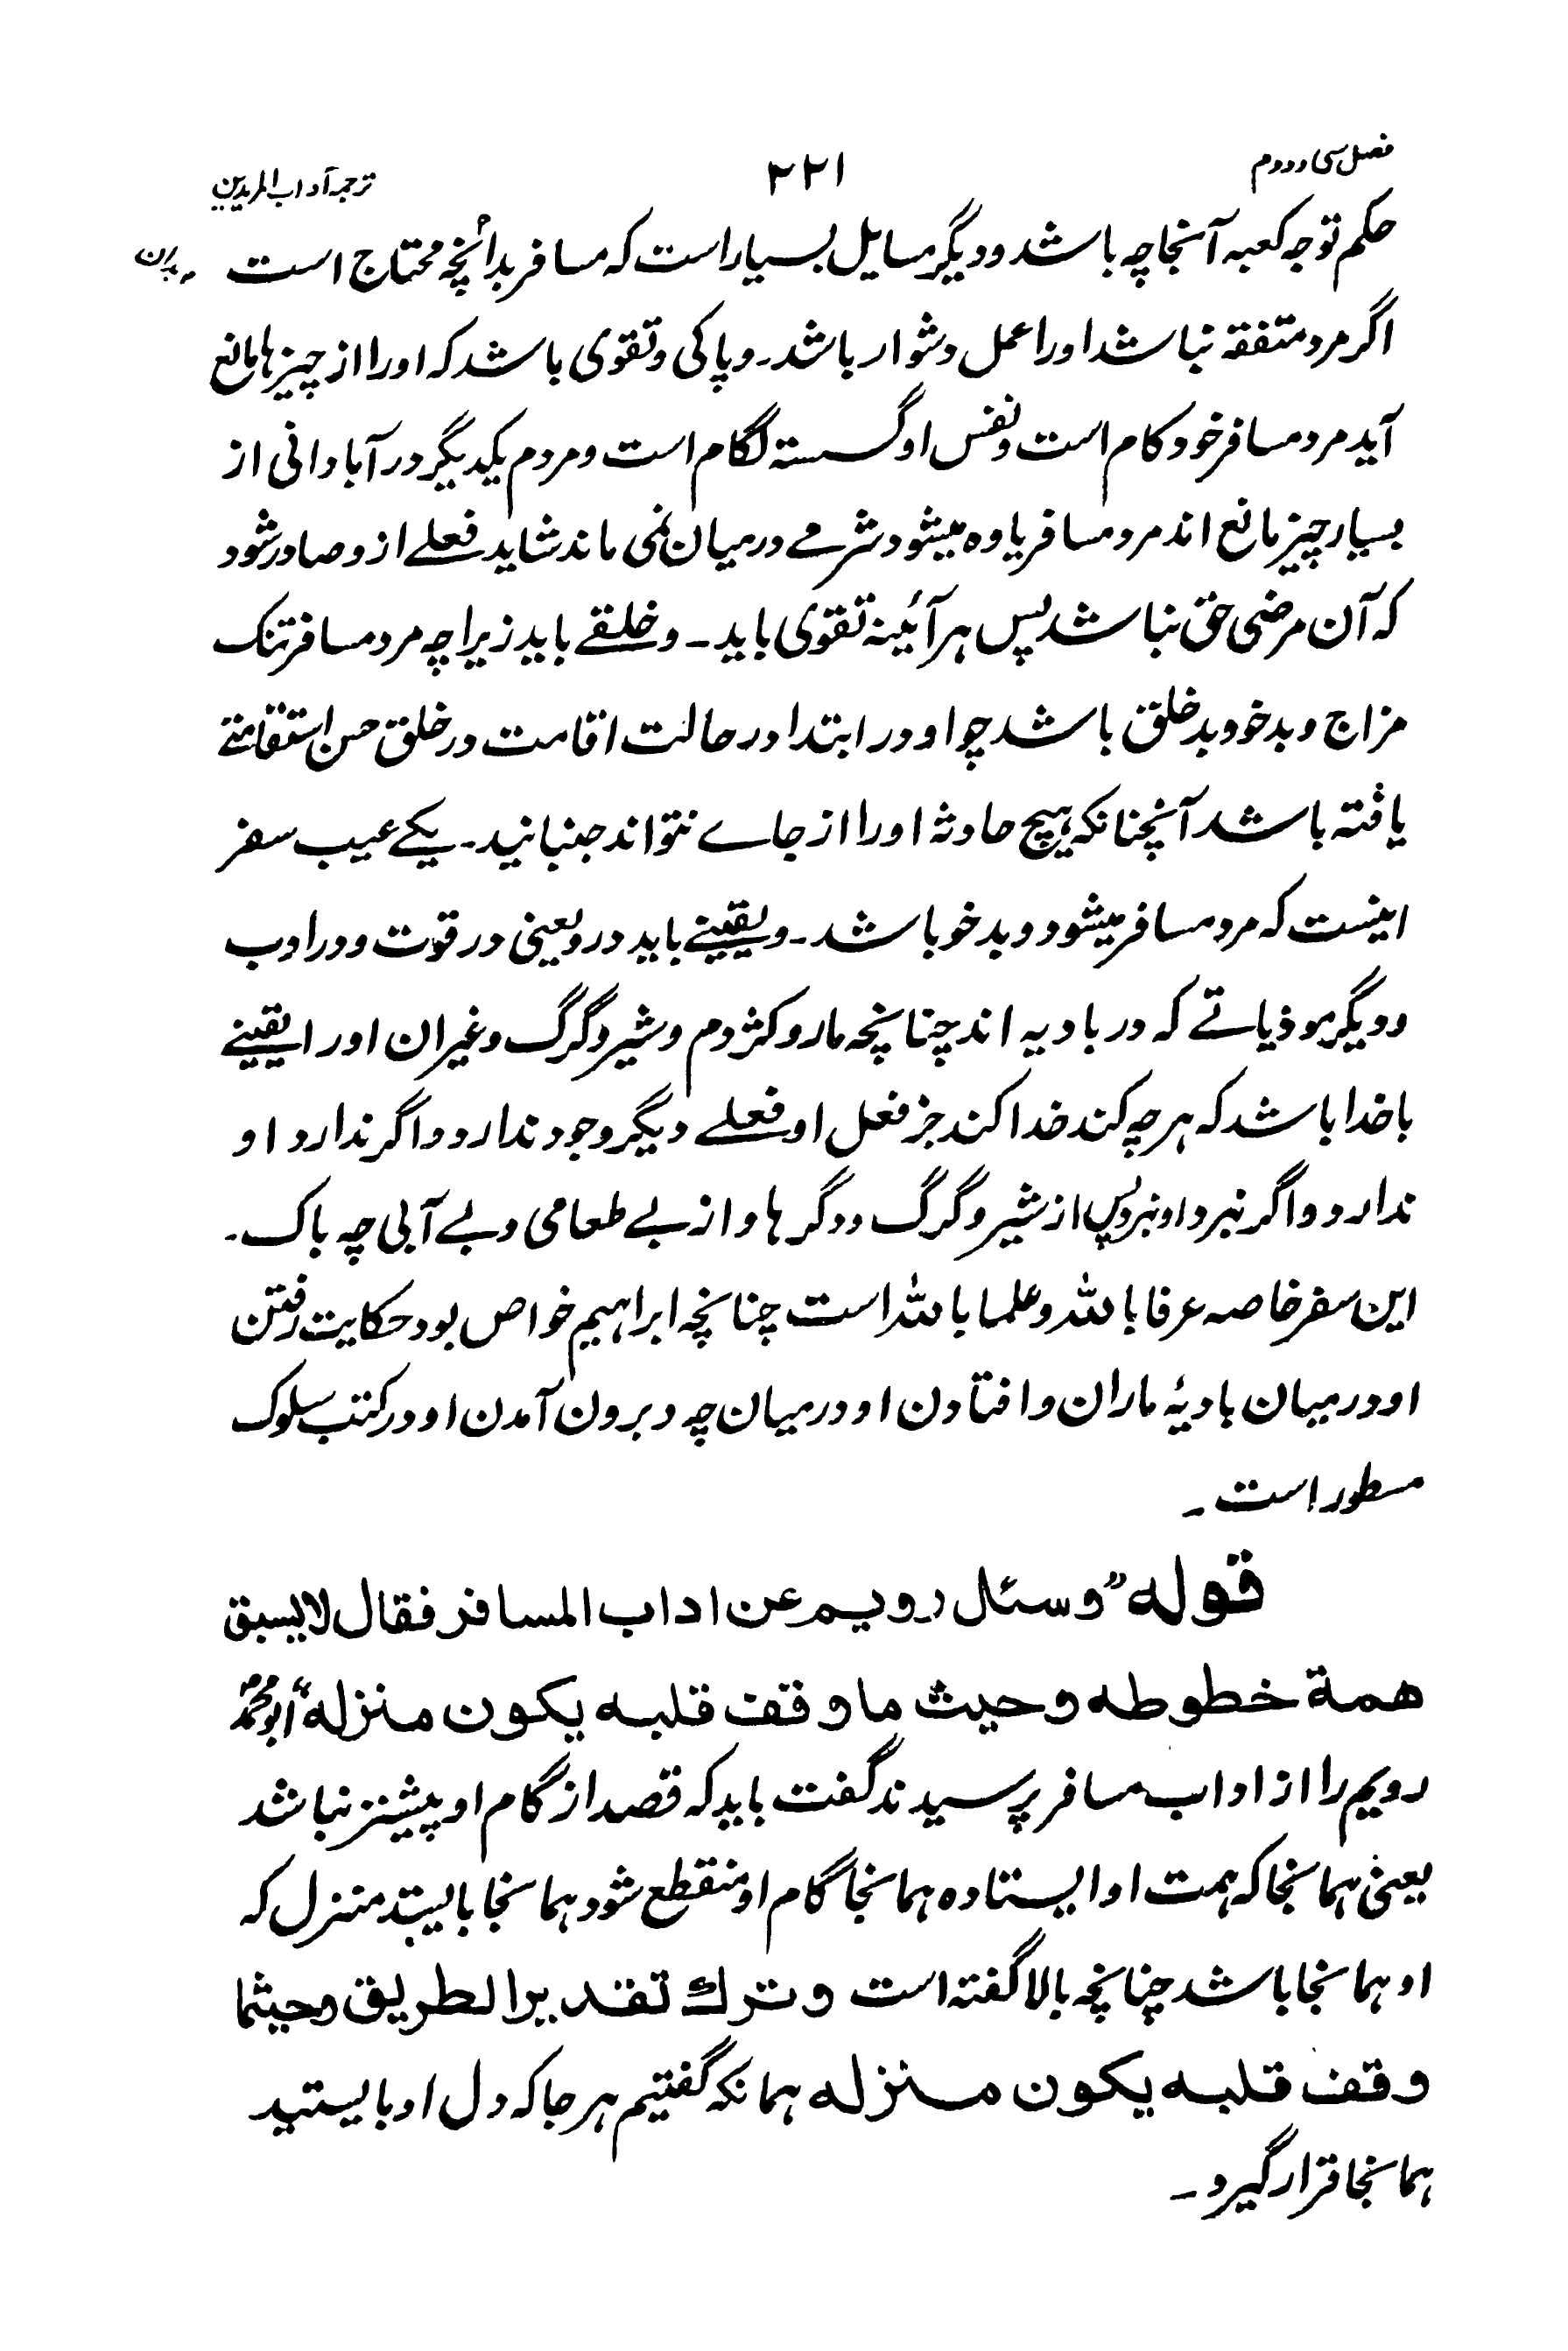 فصل سی و دوم
۲۲۱
ترجمہ آداب المریدین
حکم توجہ کعبہ آنجا چہ باشد و دیگر مسایل بسیار است کہ مسافر بدانچہ محتاج است
اگر مرد متفقہ نباشد او را عمل دشوار باشد۔ و پاکی و تقوی باشد کہ او را از چیزها مانع
آید مرد مسافر خود کام است و نفس او گسستہ لگام است و مردم یکدیگر در آبادانی از
بسیار چیز مانع اند مرد مسافر یاوہ میشود شرمے درمیان نمی ماند شاید فعلے ازو صادر شود
کہ آن مرضی حق نباشد پس ہر آئینہ تقوی باید۔ و خلقے باید زیراچہ مرد مسافر تنک
مزاج و بدخو و بد خلق باشد چو او در ابتدا در حالت اقامت در خلق حسن استقامتے
یافتہ باشد آنچنانکہ ہیچ حادثہ او را از جاے نتواند جنبانید۔ یکے عیب سفر
اینست کہ مرد مسافر میشود و بدخو باشد۔ و یقینے باید درو یعنی در قوت و در ادب
و دیگر موذیاتے کہ در بادیہ اند چنانچہ مار و کژدم و شیر و گرگ و غیر ان او را یقینے
با خدا باشد کہ ہرچہ کند خدا کند جز فعل او فعلے دیگر وجود ندارد و اگر ندارد او
ندارد و اگر نبرد او نبرد پس از شیر و گرگ و دگرها و از بے طعامی و بے آبی چہ باک۔
این سفر خاصہ عرفا باللہ و علما باللہ است چنانچہ ابراہیم خواص بود حکایت رفتن
او درمیان بادیۂ ماران و افتادن او درمیان چہ و برون آمدن او در کتب سلوک
مسطور است۔
قوله ”وسئل رويم عن اداب المسافر فقال لا يسبق
همة خطوطه وحيث ما وقف قلبه يكون منزله“ ابو محمد
رویم را از اداب مسافر پرسیدند گفت باید کہ قصد از گام او پیشتر نباشد
یعنی ہمانجا کہ ہمت او ایستادہ ہمانجا گام او منقطع شود ہمانجا بایستد منزل کہ
او ہمانجا باشد چنانچہ بالا گفتہ است وترك تقدير الطريق وحيثما
وقف قلبه يكون منزله ہمانکہ گفتیم ہر جا کہ دل او بایستید
ہمانجا قرار گیرد۔